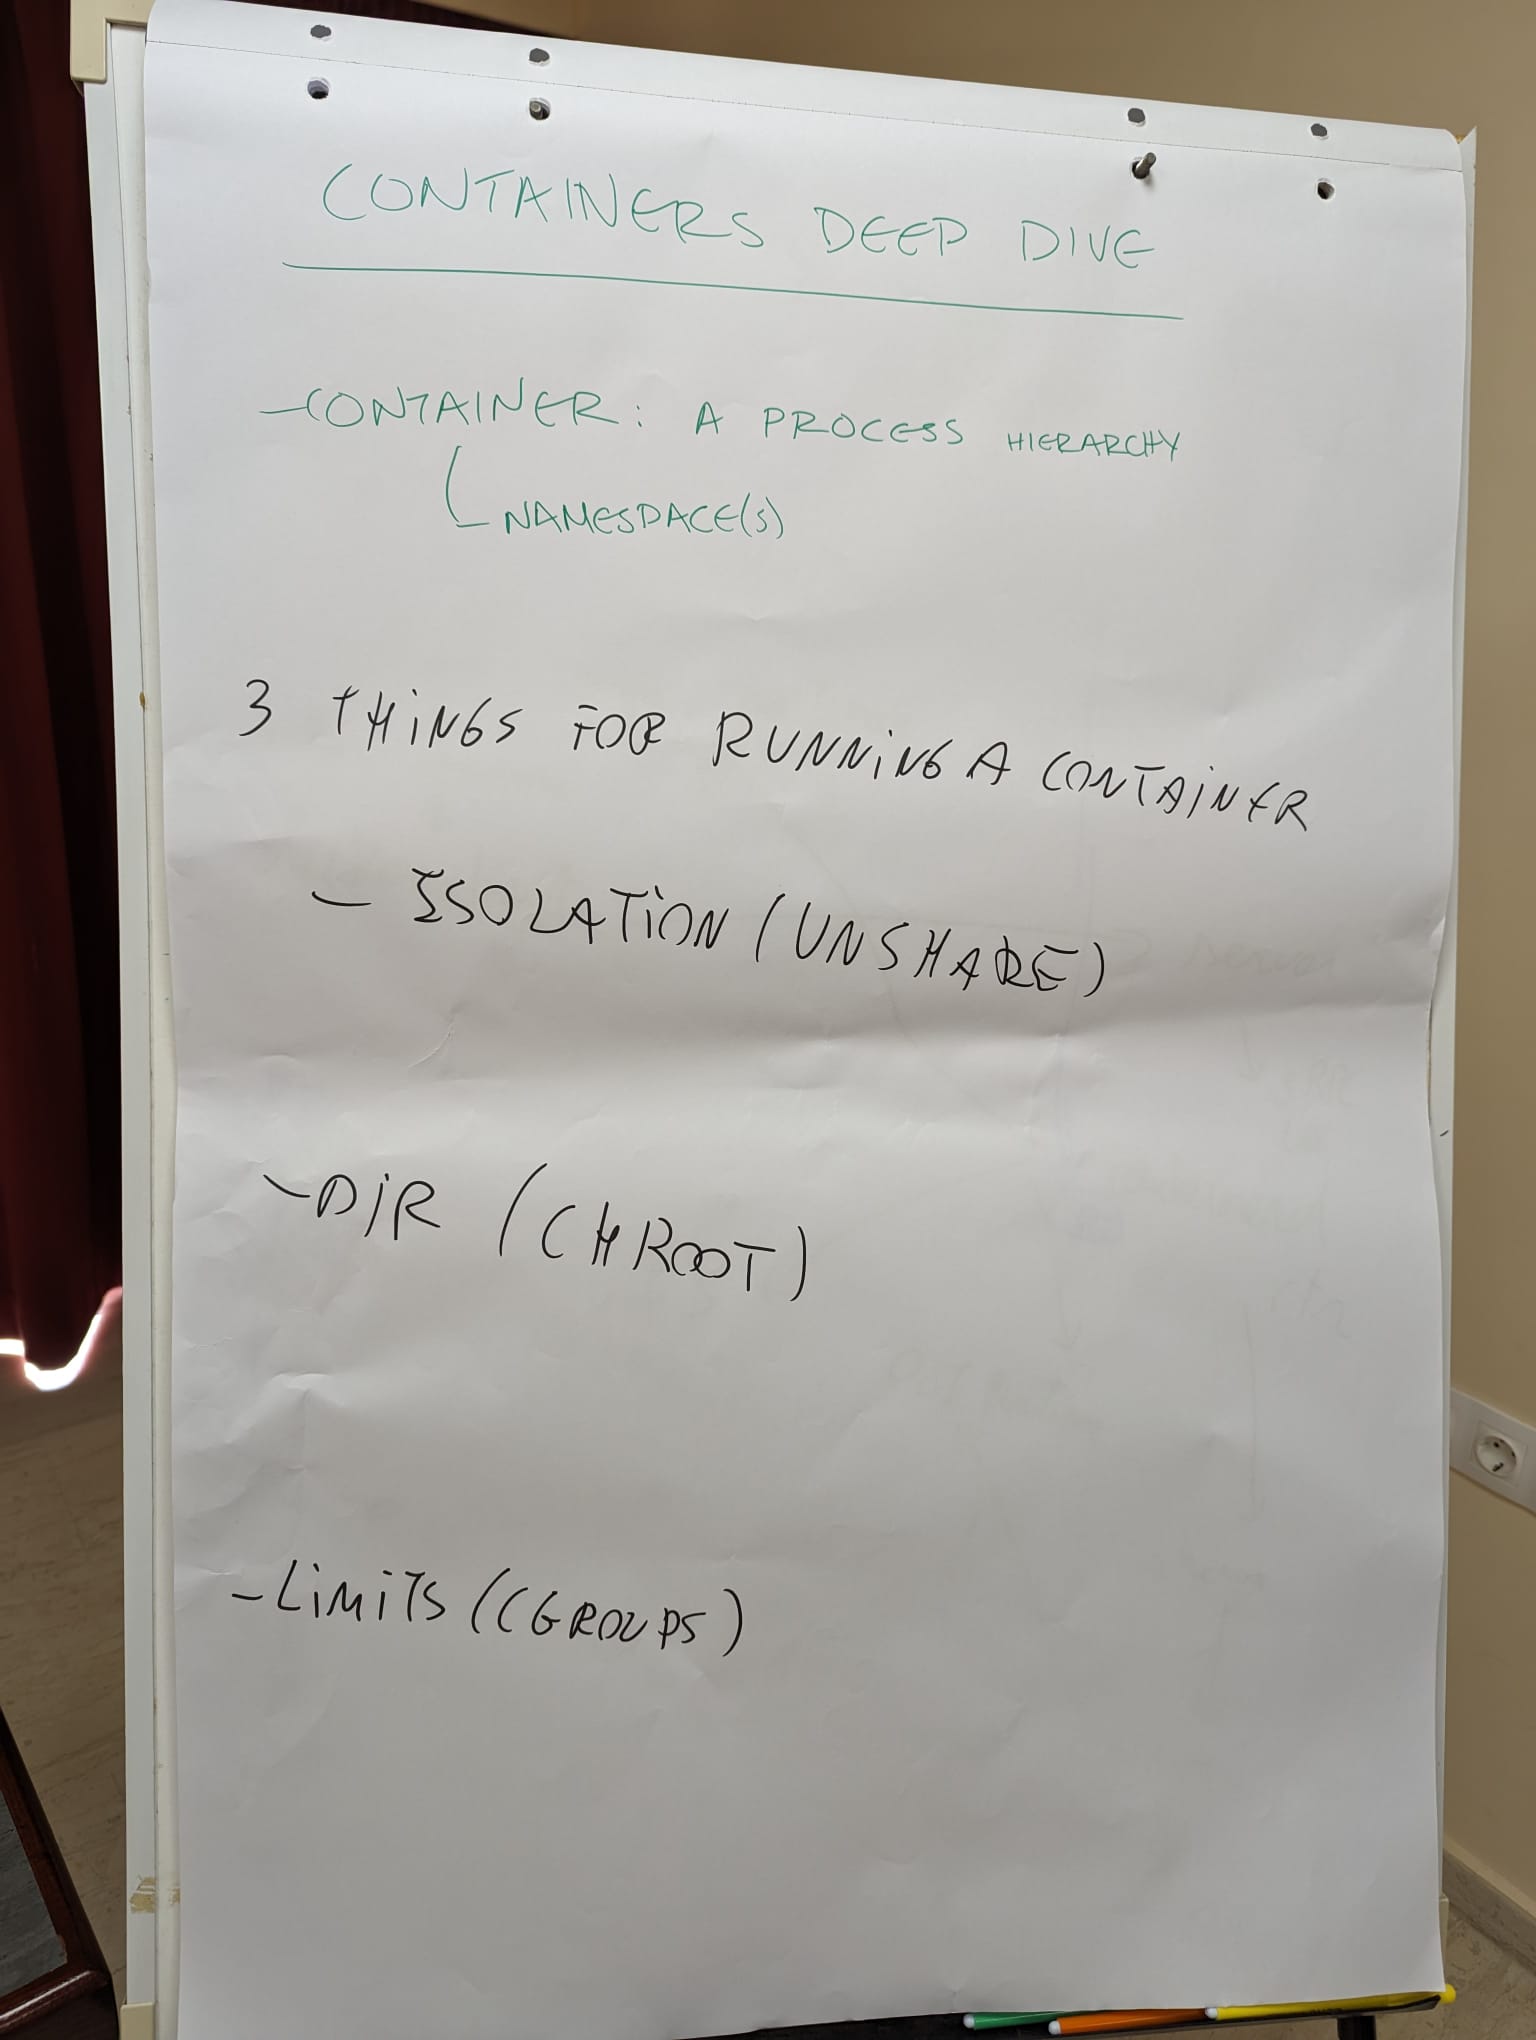 CONTAINERS DEEP DIVE
- CONTAINER: A PROCESS HIERARCHY
NAMESPACE(S)
3 THINGS FOR RUNNING A CONTAINER
- ISOLATION (UNSHARE)
- DIR (CHROOT)
- LIMITS (CGROUPS)